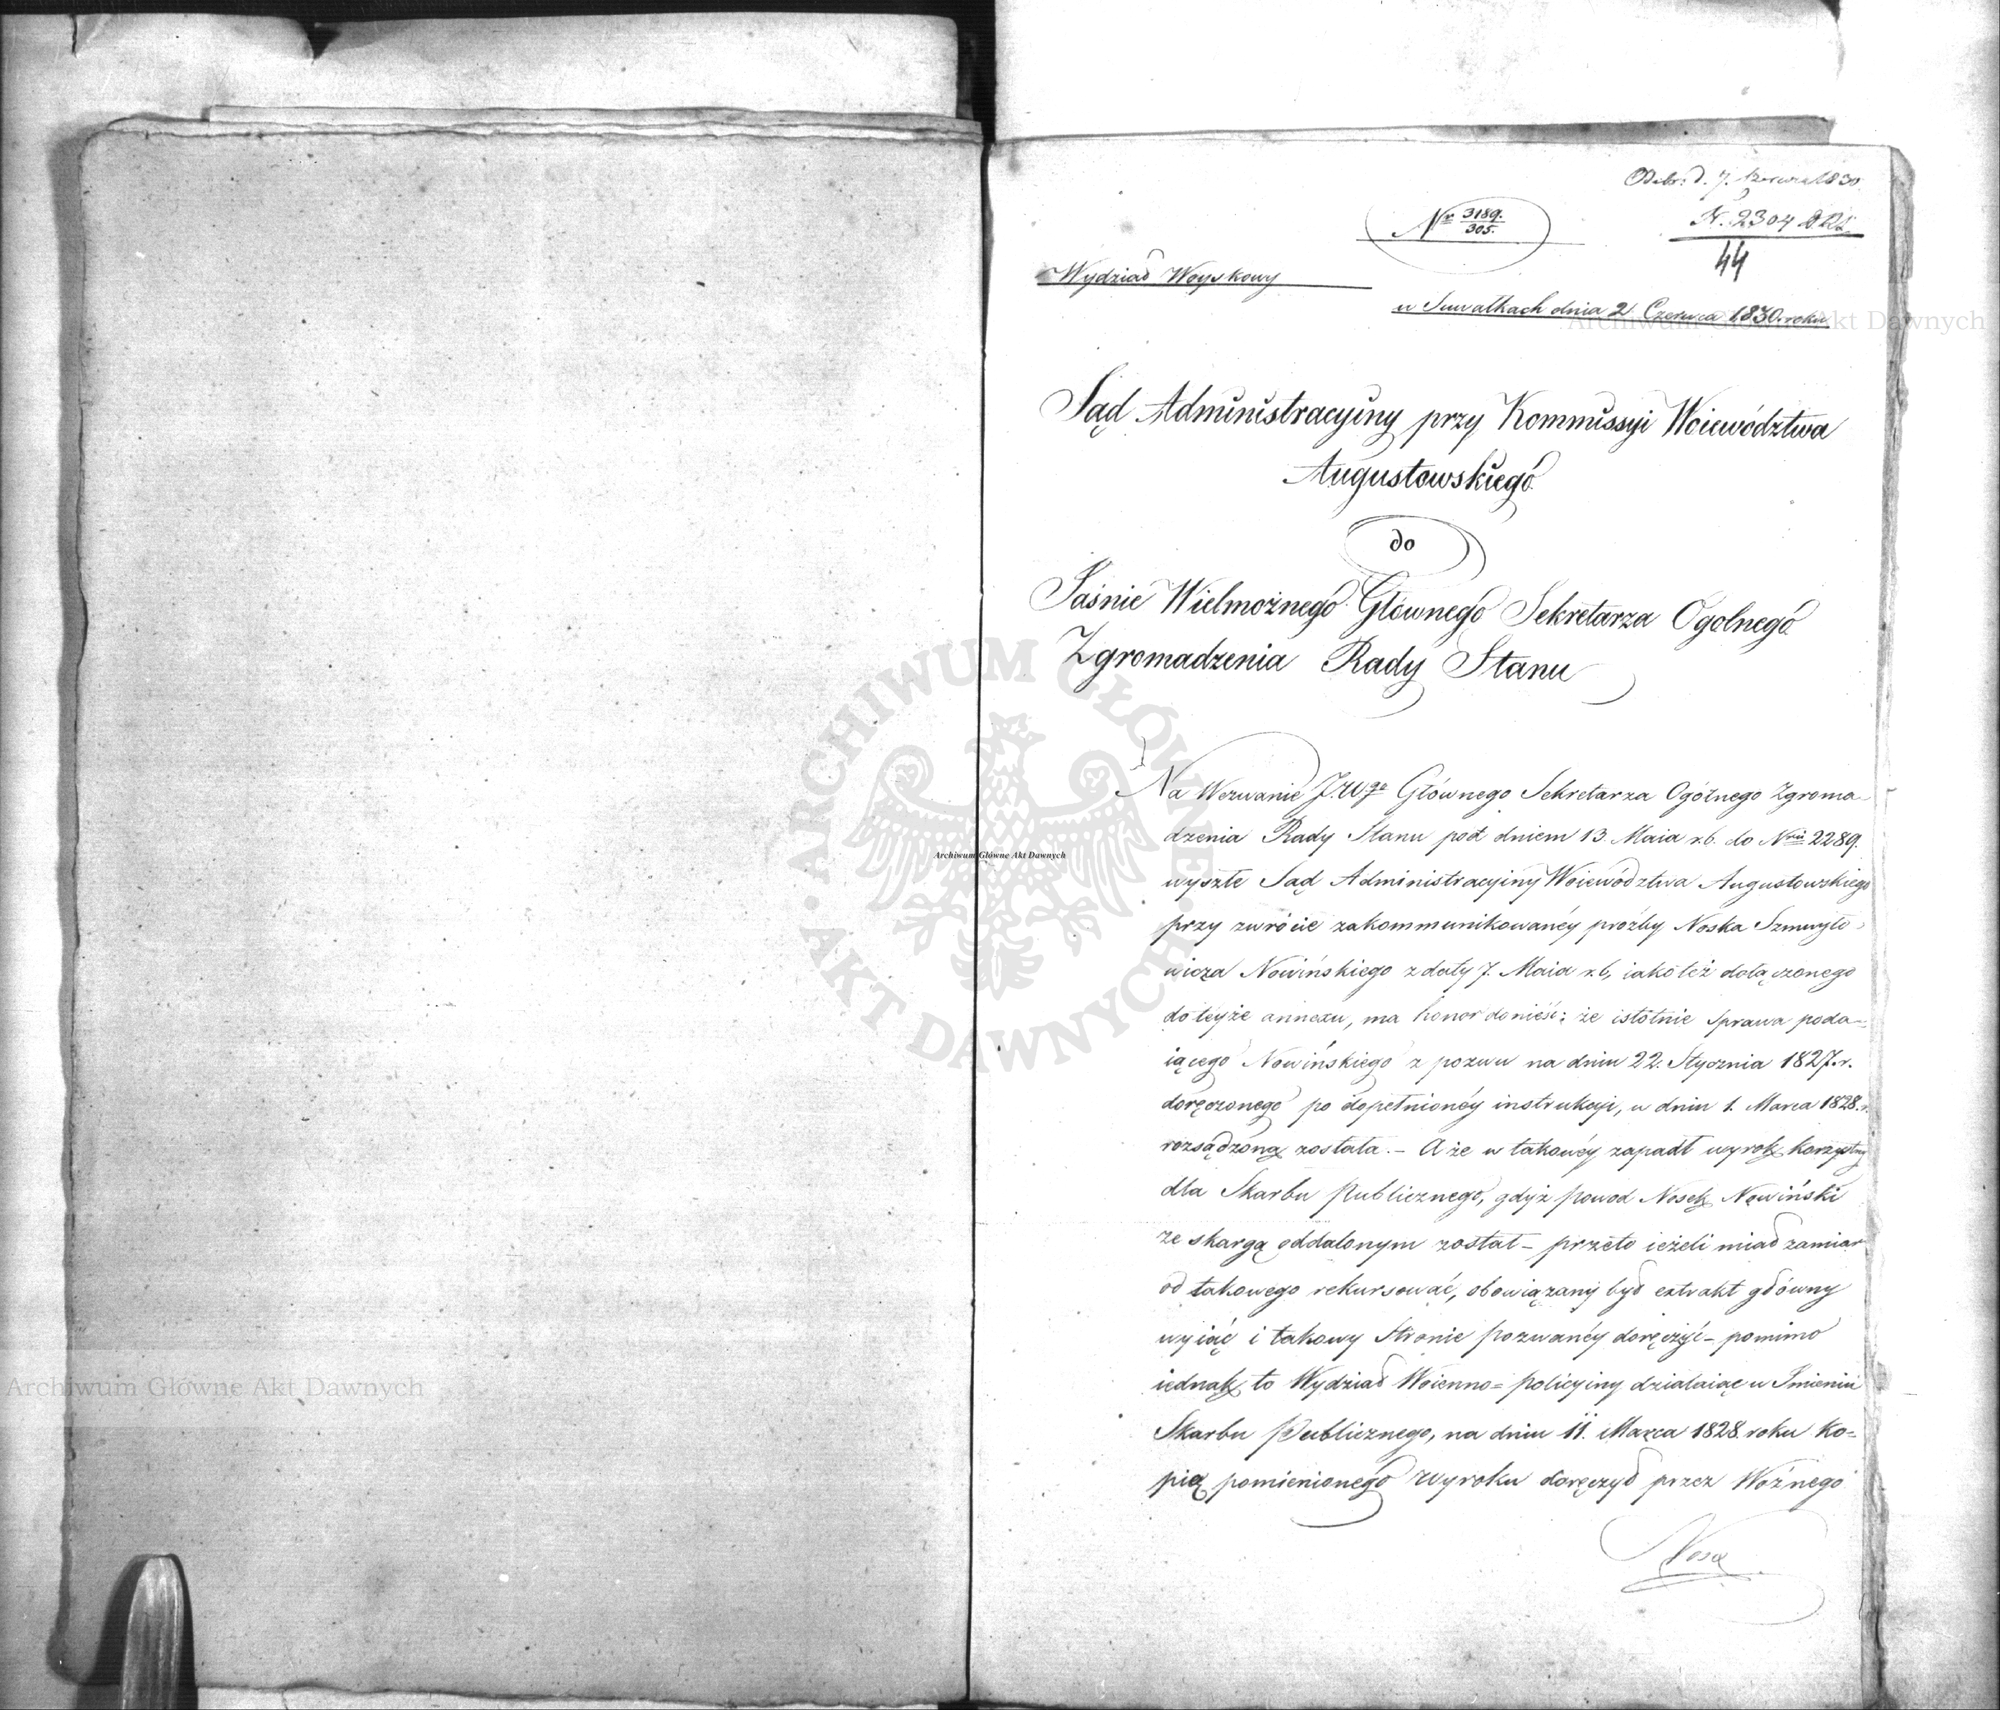 Odebr: d. 7. Czerwca 1830
Nr 3189./305.
N. 2304
44
Wydział Woyskowy
w Suwałkach dnia 2 Czerwca 1830. roku
Sąd Administracyiny przy Kommissyi Woiewództwa
Augustowskiego
do
Jaśnie Wielmożnego Głównego Sekretarza Ogolnego
Zgromadzenia Rady Stanu
Na Wezwanie J.Wgo Głównego Sekretarza Ogólnego Zgroma-
dzenia Rady Stanu pod dniem 13. Maia r.b. do Nru 2289.
wyszłe Sąd Administracyiny Woiewództwa Augustowskiego
przy zwrócie zakommunikowanéy proźby Noska Szmuyło-
wicza Nowińskiego z daty 7. Maia r.b, iako też dołączonego
do teyże annexu, ma honor donieść: że istotnie Sprawa poda-
iącego Nowińskiego z pozwu na dniu 22. Stycznia 1827. r.
doręczonego po dopełnionéy instrukcji, w dniu 1. Marca 1828. r.
rozsądzoną została. – A że w takowéy zapadł wyrok korzystny
dla Skarbu Publicznego, gdyż powod Nosek Nowiński
ze skargą oddalonym został – przeto ieżeli miał zamiar
od takowego rekursować, obowiązany był extrakt główny
wyiąć i takowy Stronie pozwanéy doręczyć – pomimo
iednak to Wydział Woienno=policyiny działaiąc w Imieniu
Skarbu Publicznego, na dniu 11. Marca 1828. roku ko=
pię pomienionego wyroku doręczył przez Woźnego
Archiwum Główne Akt Dawnych
Archiwum Główne Akt Dawnych
Archiwum Główne Akt Dawnych
ARCHIWUM GŁÓWNE
AKT DAWNYCH